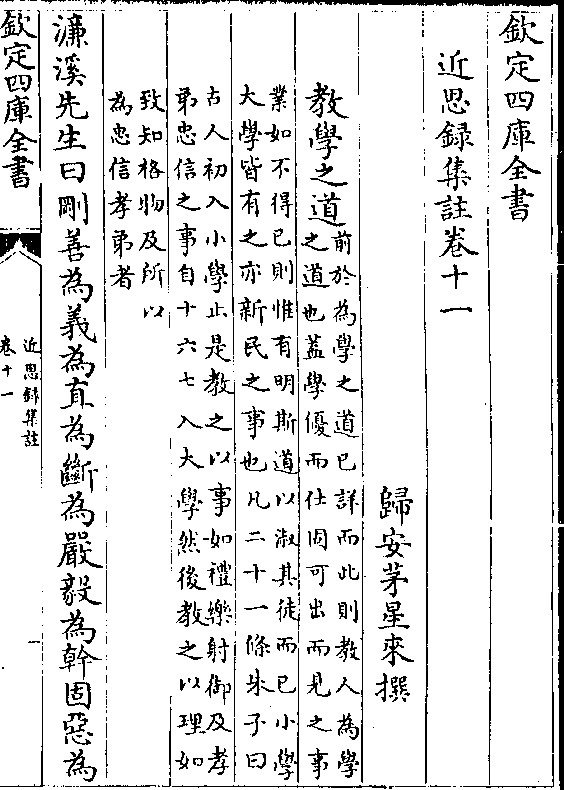 欽定四庫全書
近思録集註卷十一
歸安茅星來撰
教學之道
前於為學之道已詳而此則教人為學
之道也蓋學優而仕固可出而見之事
業如不得已則惟有明斯道以淑其徒而已小學
大學皆有之亦新民之事也凡二十一條朱子曰
古人初入小學止是教之以事如禮樂射御及孝
弟忠信之事自十六七入大學然後教之以理如
致知格物及所以
為忠信孝弟者
濂溪先生曰剛善為義為直為斷為嚴毅為幹固惡為
欽定四庫全書
近思録集註
卷十一
一